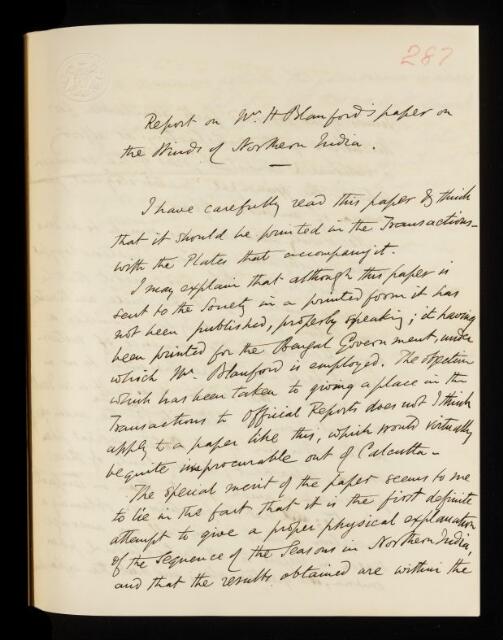 287
Report on Mr. H Blanford's paper on
the Winds of Northern India.
I have carefully read this paper & think
that it should be printed in the Transactions
with the Plates that accompany it.
I may explain that although this paper is
sent to the Society in a printed form it has
not been published, properly speaking; it having
been printed for the Bengal Government, under
which Mr. Blanford is employed. The objection
which has been taken to giving a place in the
Transactions to Official Reports does not I think
apply to a paper like this, which would virtually
be quite unprocurable out of Calcutta–
The special merit of the paper seems to me
to lie in the fact that it is the first definite
attempt to give a proper physical explanation
of the Sequence of the Seasons in Northern India,
and that the results obtained are within the